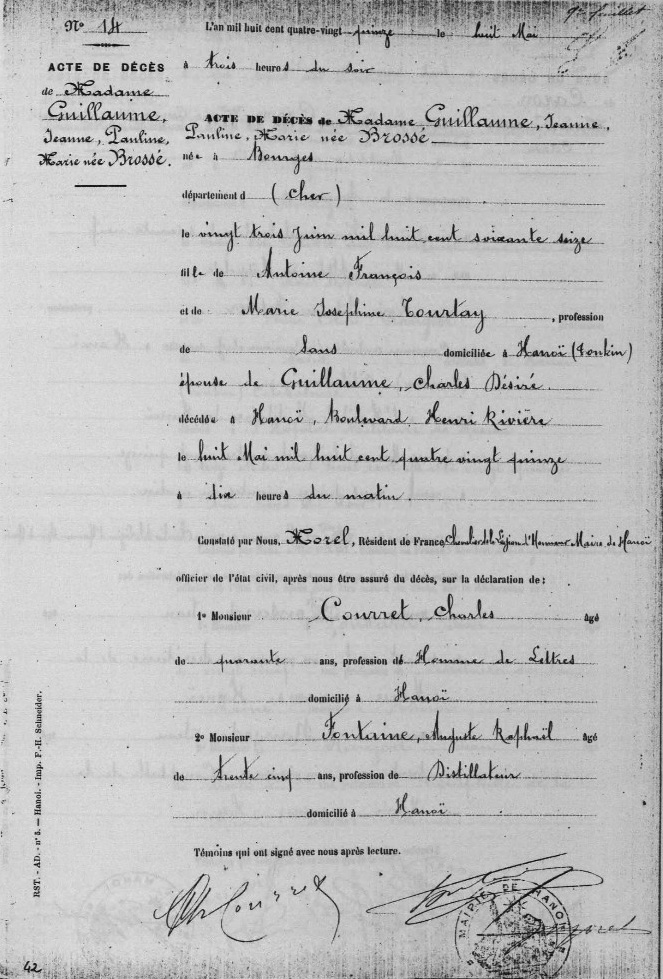 9e feuillet
No 14
L'an mil huit cent quatre-vingt quinze le huit Mai
à trois heures du soir
ACTE DE DÉCÈS
de Madame
Guillaume,
Jeanne, Pauline,
Marie née Brossé.
ACTE DE DÉCÈS de Madame Guillaume, Jeanne,
Pauline, Marie née Brossé
née à Bourges
département d (Cher)
le vingt trois Juin mil huit cent soixante seize
fille de Antoine François
et de Marie Joséphine Tourtay, profession
de Sans domiciliée à Hanoï (Tonkin)
épouse de Guillaume, Charles Désiré.
décédée à Hanoï, Boulevard Henri Rivière
le huit Mai mil huit cent quatre vingt quinze
à dix heures du matin
Constaté par Nous, Morel, Résident de France, Chevalier de la Légion d'Honneur Maire de Hanoï
officier de l'état civil, après nous être assuré du décès, sur la déclaration de :
1o Monsieur Courret, Charles âgé
de quarante ans, profession de Homme de Lettres
domicilié à Hanoï
2o Monsieur Fontaine, Auguste Raphaël âgé
de trente cinq ans, profession de Distillateur
domicilié à Hanoï
Témoins qui ont signé avec nous après lecture.
Ch Courret
Morel
MAIRIE DE HANOI
RST. - AD. - no 5. — Hanoi. - Imp. F.-H. Schneider.
42